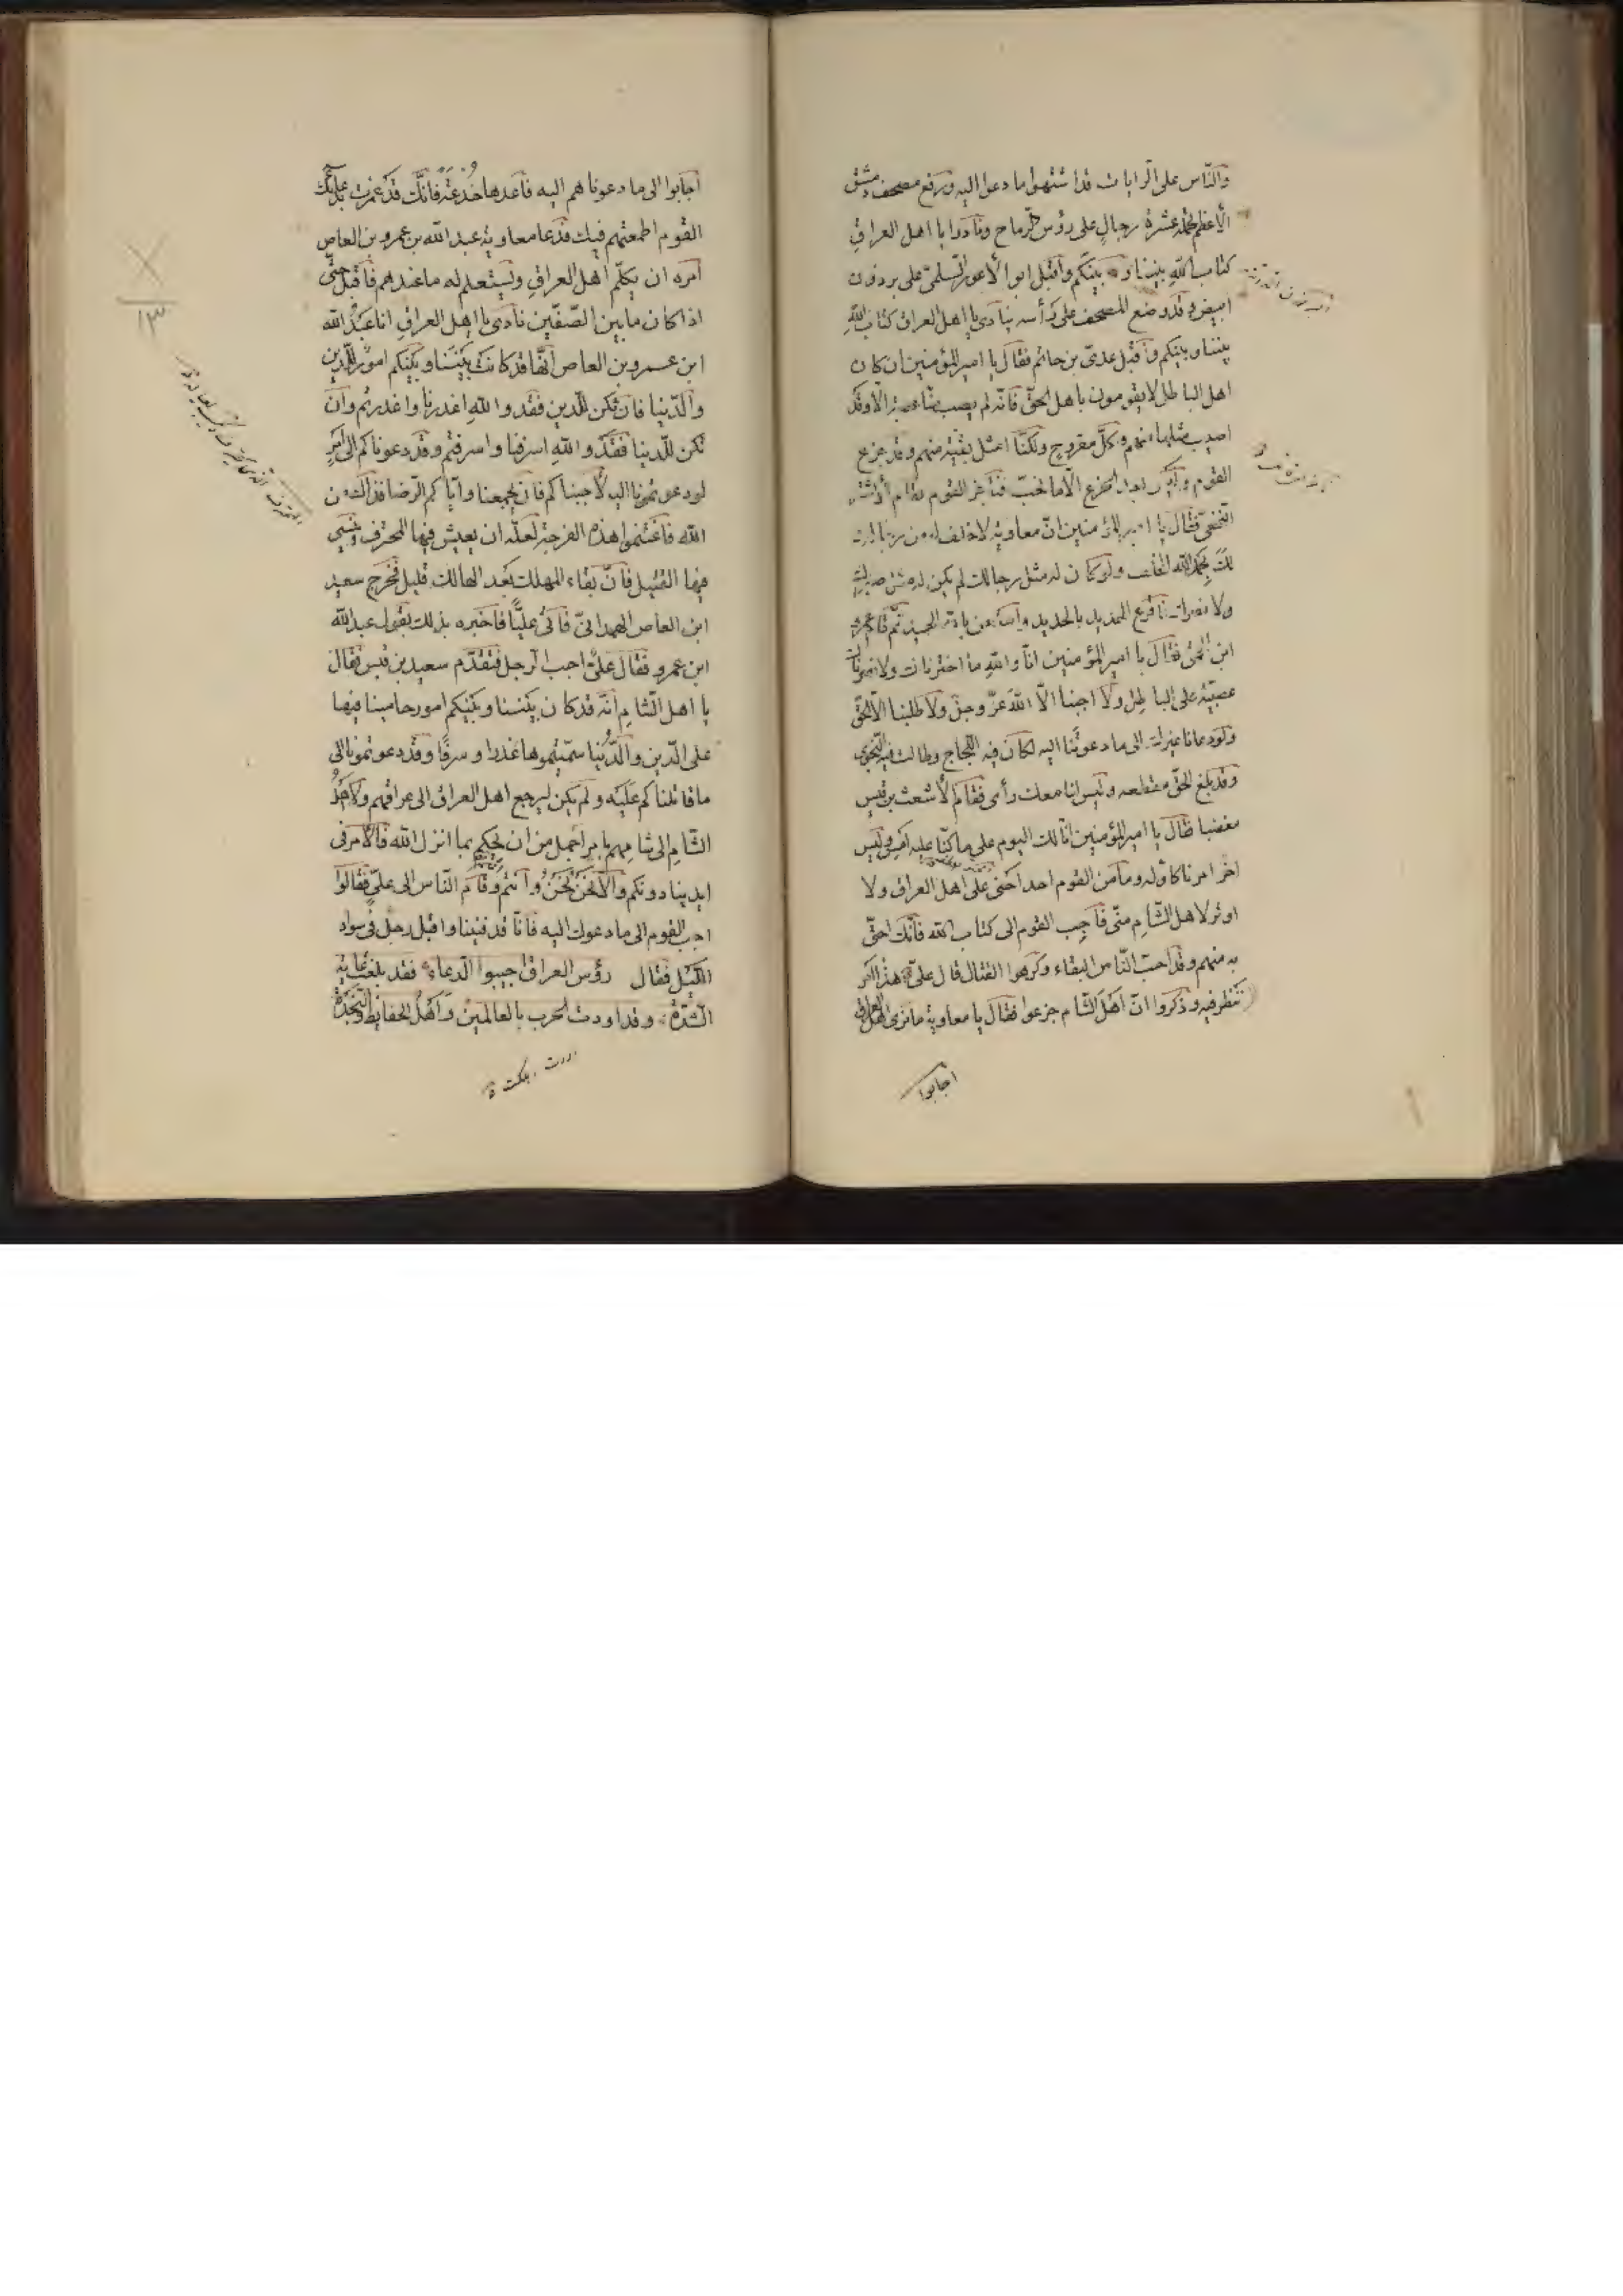 والنّاس على الرايات قد اشتهوا ما دعوا اليه ورفع مصحف دمشق
الأعظم تحمله عشرة رجال على رؤس الرماح ونادوا يا اهل العراق
كتاب الله بيننا وبينكم واقبل ابوا الأعور السلمىّ على برذون
ابيض وقد وضع المصحف على رأسه ينادى يا اهل العراق كتاب الله
بيننا وبينكم واقبل عدىّ بن حاتم فقال يا امير المؤمنين ان كان
اهل الباطل لا يقومون باهل الحقّ فانّه لم يصب منّا عصبة الّا وقد
اصيب مثلها منهم وكلّ مقروح ولكنّا امثل بقيّة منهم وقد جزع
القوم وليس بعد الجزع الّا ما نحبّ فناجز القوم فقام الأشتر
النّخعىّ فقال يا امير المؤمنين انّ معاوية لا خلف له من رجاله
لك بحمد الله الخلف ولو كان له مثل رجالك لم يكن له مثل صبرك
ولا بصرك فاقرع الحديد بالحديد واستعن بالله الحميد ثمّ قام عمرو
ابن الحمق فقال يا امير المؤمنين انّا والله ما اخترناك ولا نصرناك
عصبيّة على الباطل ولا اجبنا الّا الله عزّ وجلّ ولا طلبنا الّا الحقّ
ولو دعانا غيرك الى ما دعوتنا اليه لكان فيه اللّجاج وطالت فيه النّجوى
وقد بلغ الحقّ مقطعه وليس لنا معك رأى فقام الأشعث بن قيس
مغضبا فقال يا امير المؤمنين انّا لك اليوم على ما كنّا عليه امس وليس
اخر امرنا كأوله وما من القوم احد احنى على اهل العراق ولا
اوتر لاهل الشّام منّى فأجب القوم الى كتاب الله فانّك احقّ
به منهم وقد احبّ النّاس البقاء وكرهوا القتال قال علىّ هذا امر
ننظر فيه وذكروا انّ اهل الشّام جزعوا فقال يا معاوية ما نرى اهل العراق
اجابوا
اجابوا الى ما دعوناهم اليه فاعدها خُدْعَةً فانّك قد غمرت بدعائك
القوم اطمعتهم فيك فدعا معاوية عبد الله بن عمرو بن العاص
امره ان يكلّم اهل العراق ويستعلم له ما عندهم فاقبل حتّى
اذا كان ما بين الصّفّين نادى يا اهل العراق انا عبد الله
ابن عمرو بن العاص انّها قد كانت بيننا وبينكم امور للدّين
والدّنيا فان تكن للدّين فقد والله اعذرنا واعذرتم وان
تكن للدّنيا فقد والله اسرفنا واسرفتم وقد دعوناكم الى امر
لو دعوتمونا اليه لأجبناكم فان يجمعنا وايّاكم الرّضا فذلك من
الله فاغتنموا هذه الفرجة لعلّه ان يعيش فيها المحترف وينسى
فيها القتيل فانّ بقاء المهلك بعد الهالك قليل فخرج سعيد
ابن العاص الهمدانىّ فاتى عليّاً فاخبره بذلك بقول عبد الله
ابن عمرو فقال علىّ اجب الرجل فتقدّم سعيد بن قيس فقال
يا اهل الشّام انّه قد كان بيننا وبينكم امور حامينا فيها
على الدّين والدّنيا سمّيتموها غدرا وسرفاً وقد دعوتمونا الى
ما قاتلناكم عليه ولم يكن ليرجع اهل العراق الى عراقهم ولا اهل
الشّام الى شامهم بامر اجمل من ان يحكم بما انزل الله فالامر فى
ايدينا دونكم والّا فنحن نحن وانتم انتم وقام النّاس الى علىّ فقالوا
اجب القوم الى ما دعوك اليه فانّا قد فنينا واقبل رجل فى سواد
اللّيل فقال رؤس العراق اجيبوا الدعاء فقد بلغت غاية
الشّدّة وقد اودت الحرب بالعالمين واهل الحفايظ والنّجدة
اودت هلكت
١٣